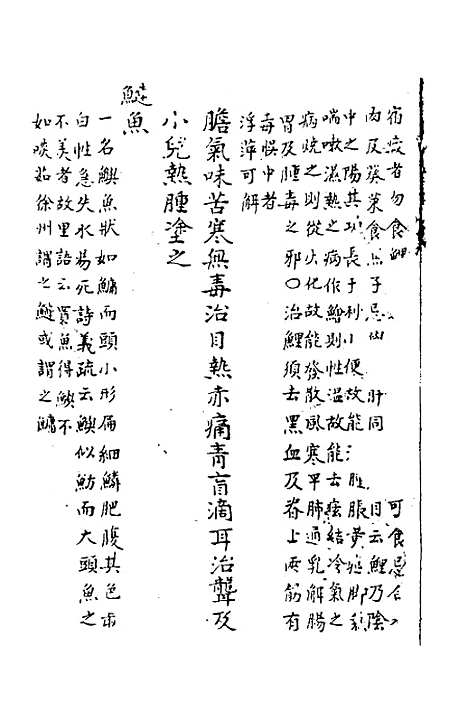 宿疫者勿食鯉 可食忌合
肉及葵菜食 子忌 肝同 目云鯉乃陰
中之陽其功長于利小便故能 腫脹黄疸脚氣
喘嗽濕熱之病作鱠則性温故能去痃結冷氣之
病燒之則從火化故能發散風寒平肺通乳解腸
胃及腫毒之邪〇治鯉須去黑血及脊上兩筋有
毒悞中者
浮萍可解
膽氣味苦寒無毒治目熱赤痛青盲滴耳治聾及
小兒熱腫塗之
鰱魚
一名鱮魚狀如鱅而頭小形扁細鱗肥腹其色
白性急失水易死詩義疏云鱮似魴而大頭魚之
不美者故里語云買魚得鱮不
如啖茹徐州謂之鰱或謂之鱅